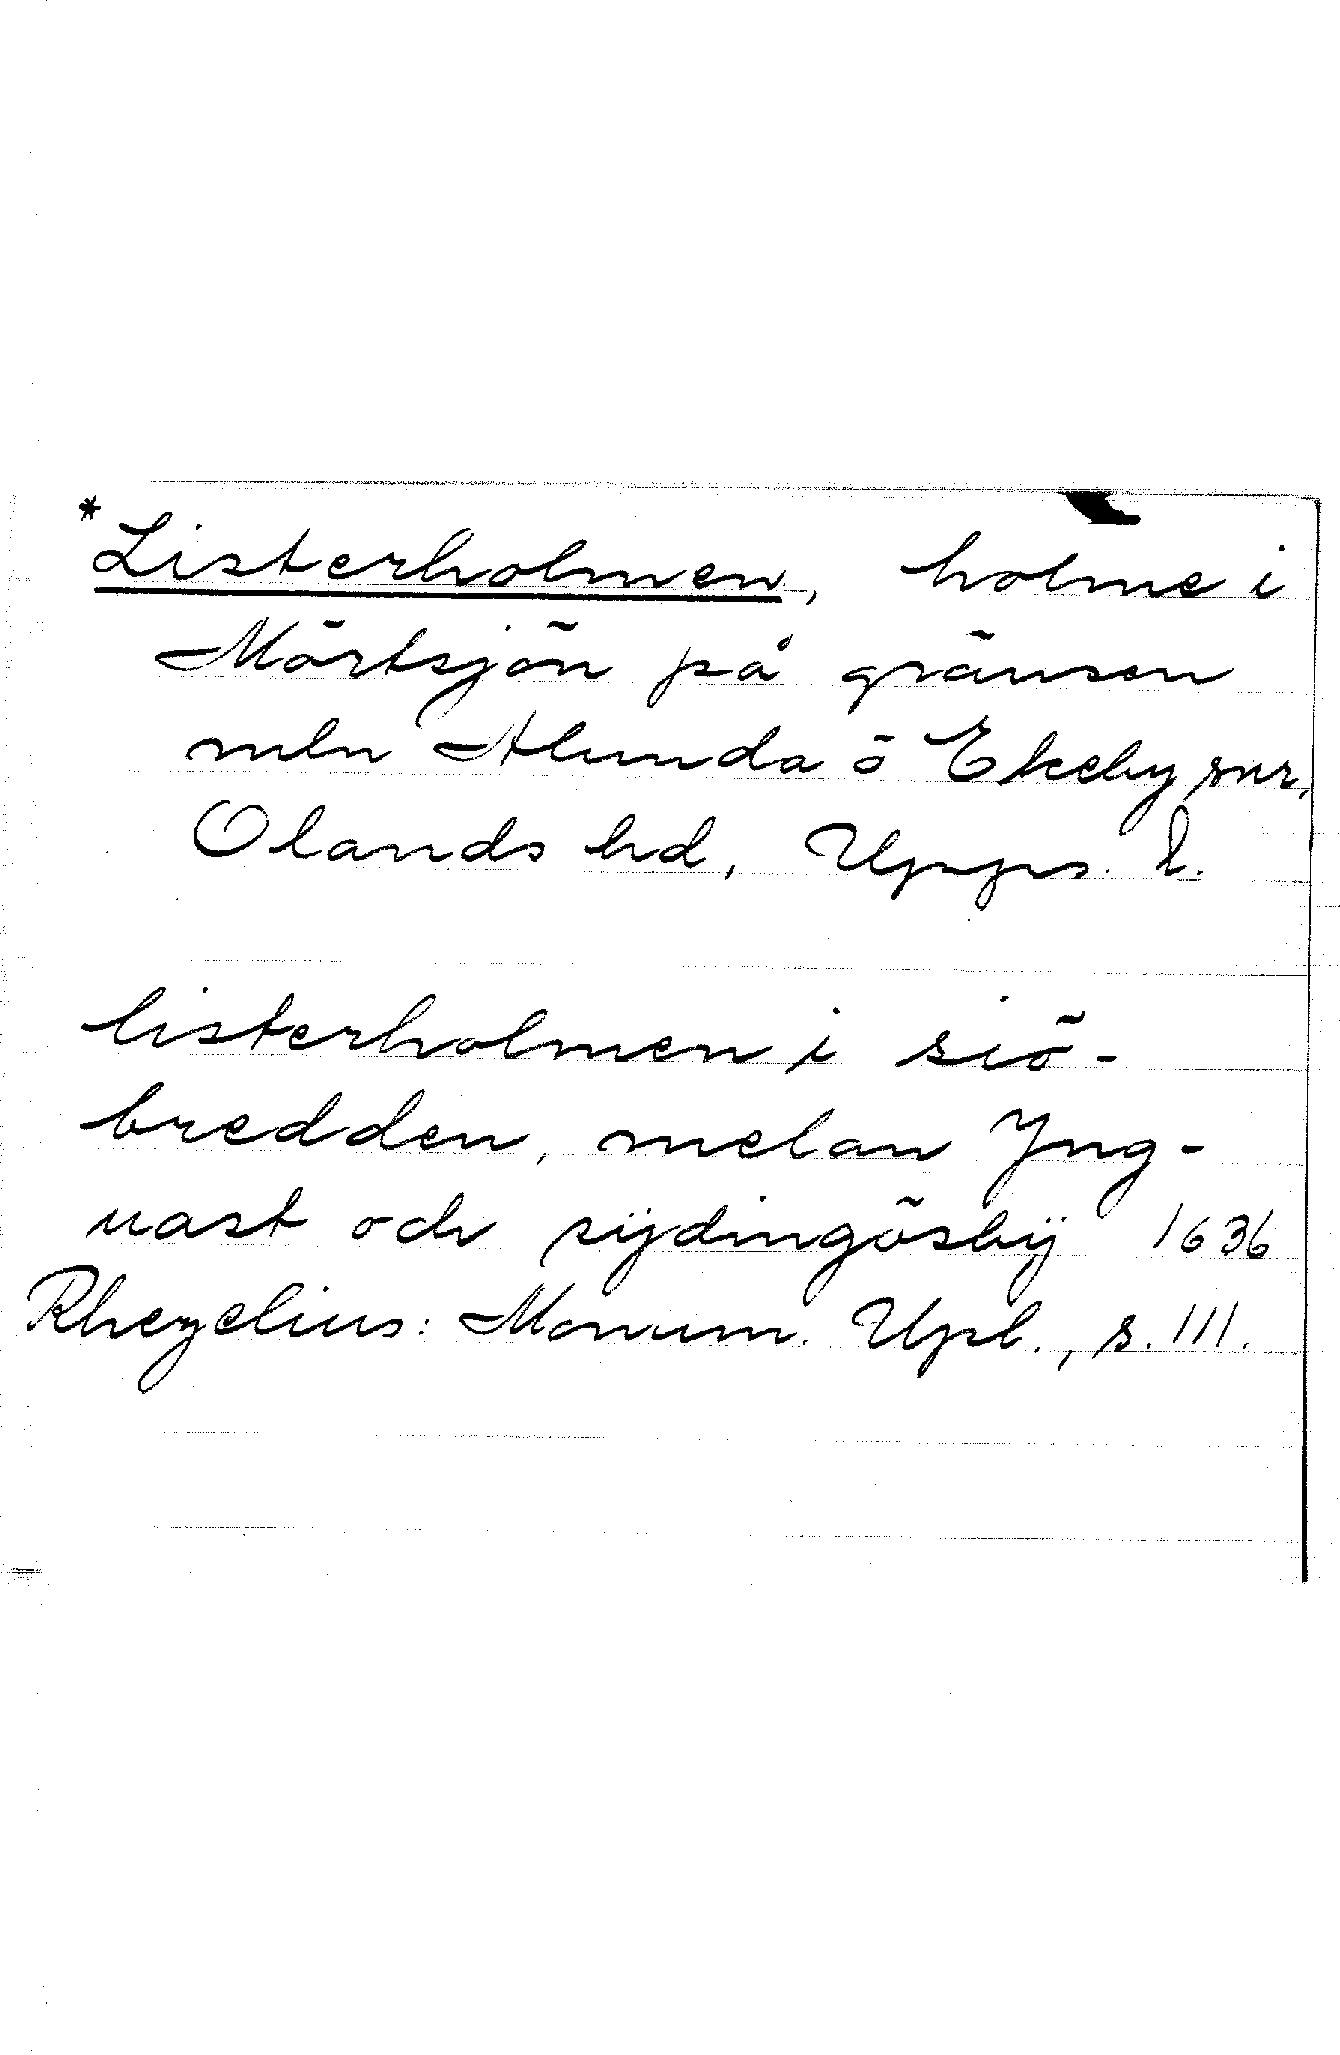 *Listerholmen, holme i
Mörtsjön på gränsen
mln Alunda o Ekeby snr,
Olands hd, Upps. l.
listerholmen i siö-
bredden, melan Yng-
uast och sÿdingösbÿ 1636
Rhezelius: Monum. Upl., s. 111.